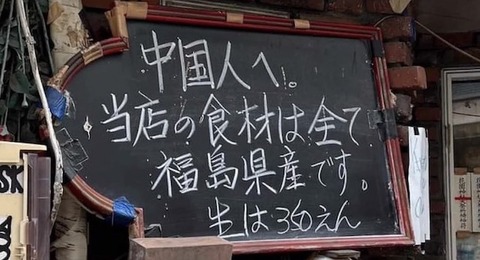 中国人へ!。
当店の食材は全て
福島県産です。
生は350えん
SK